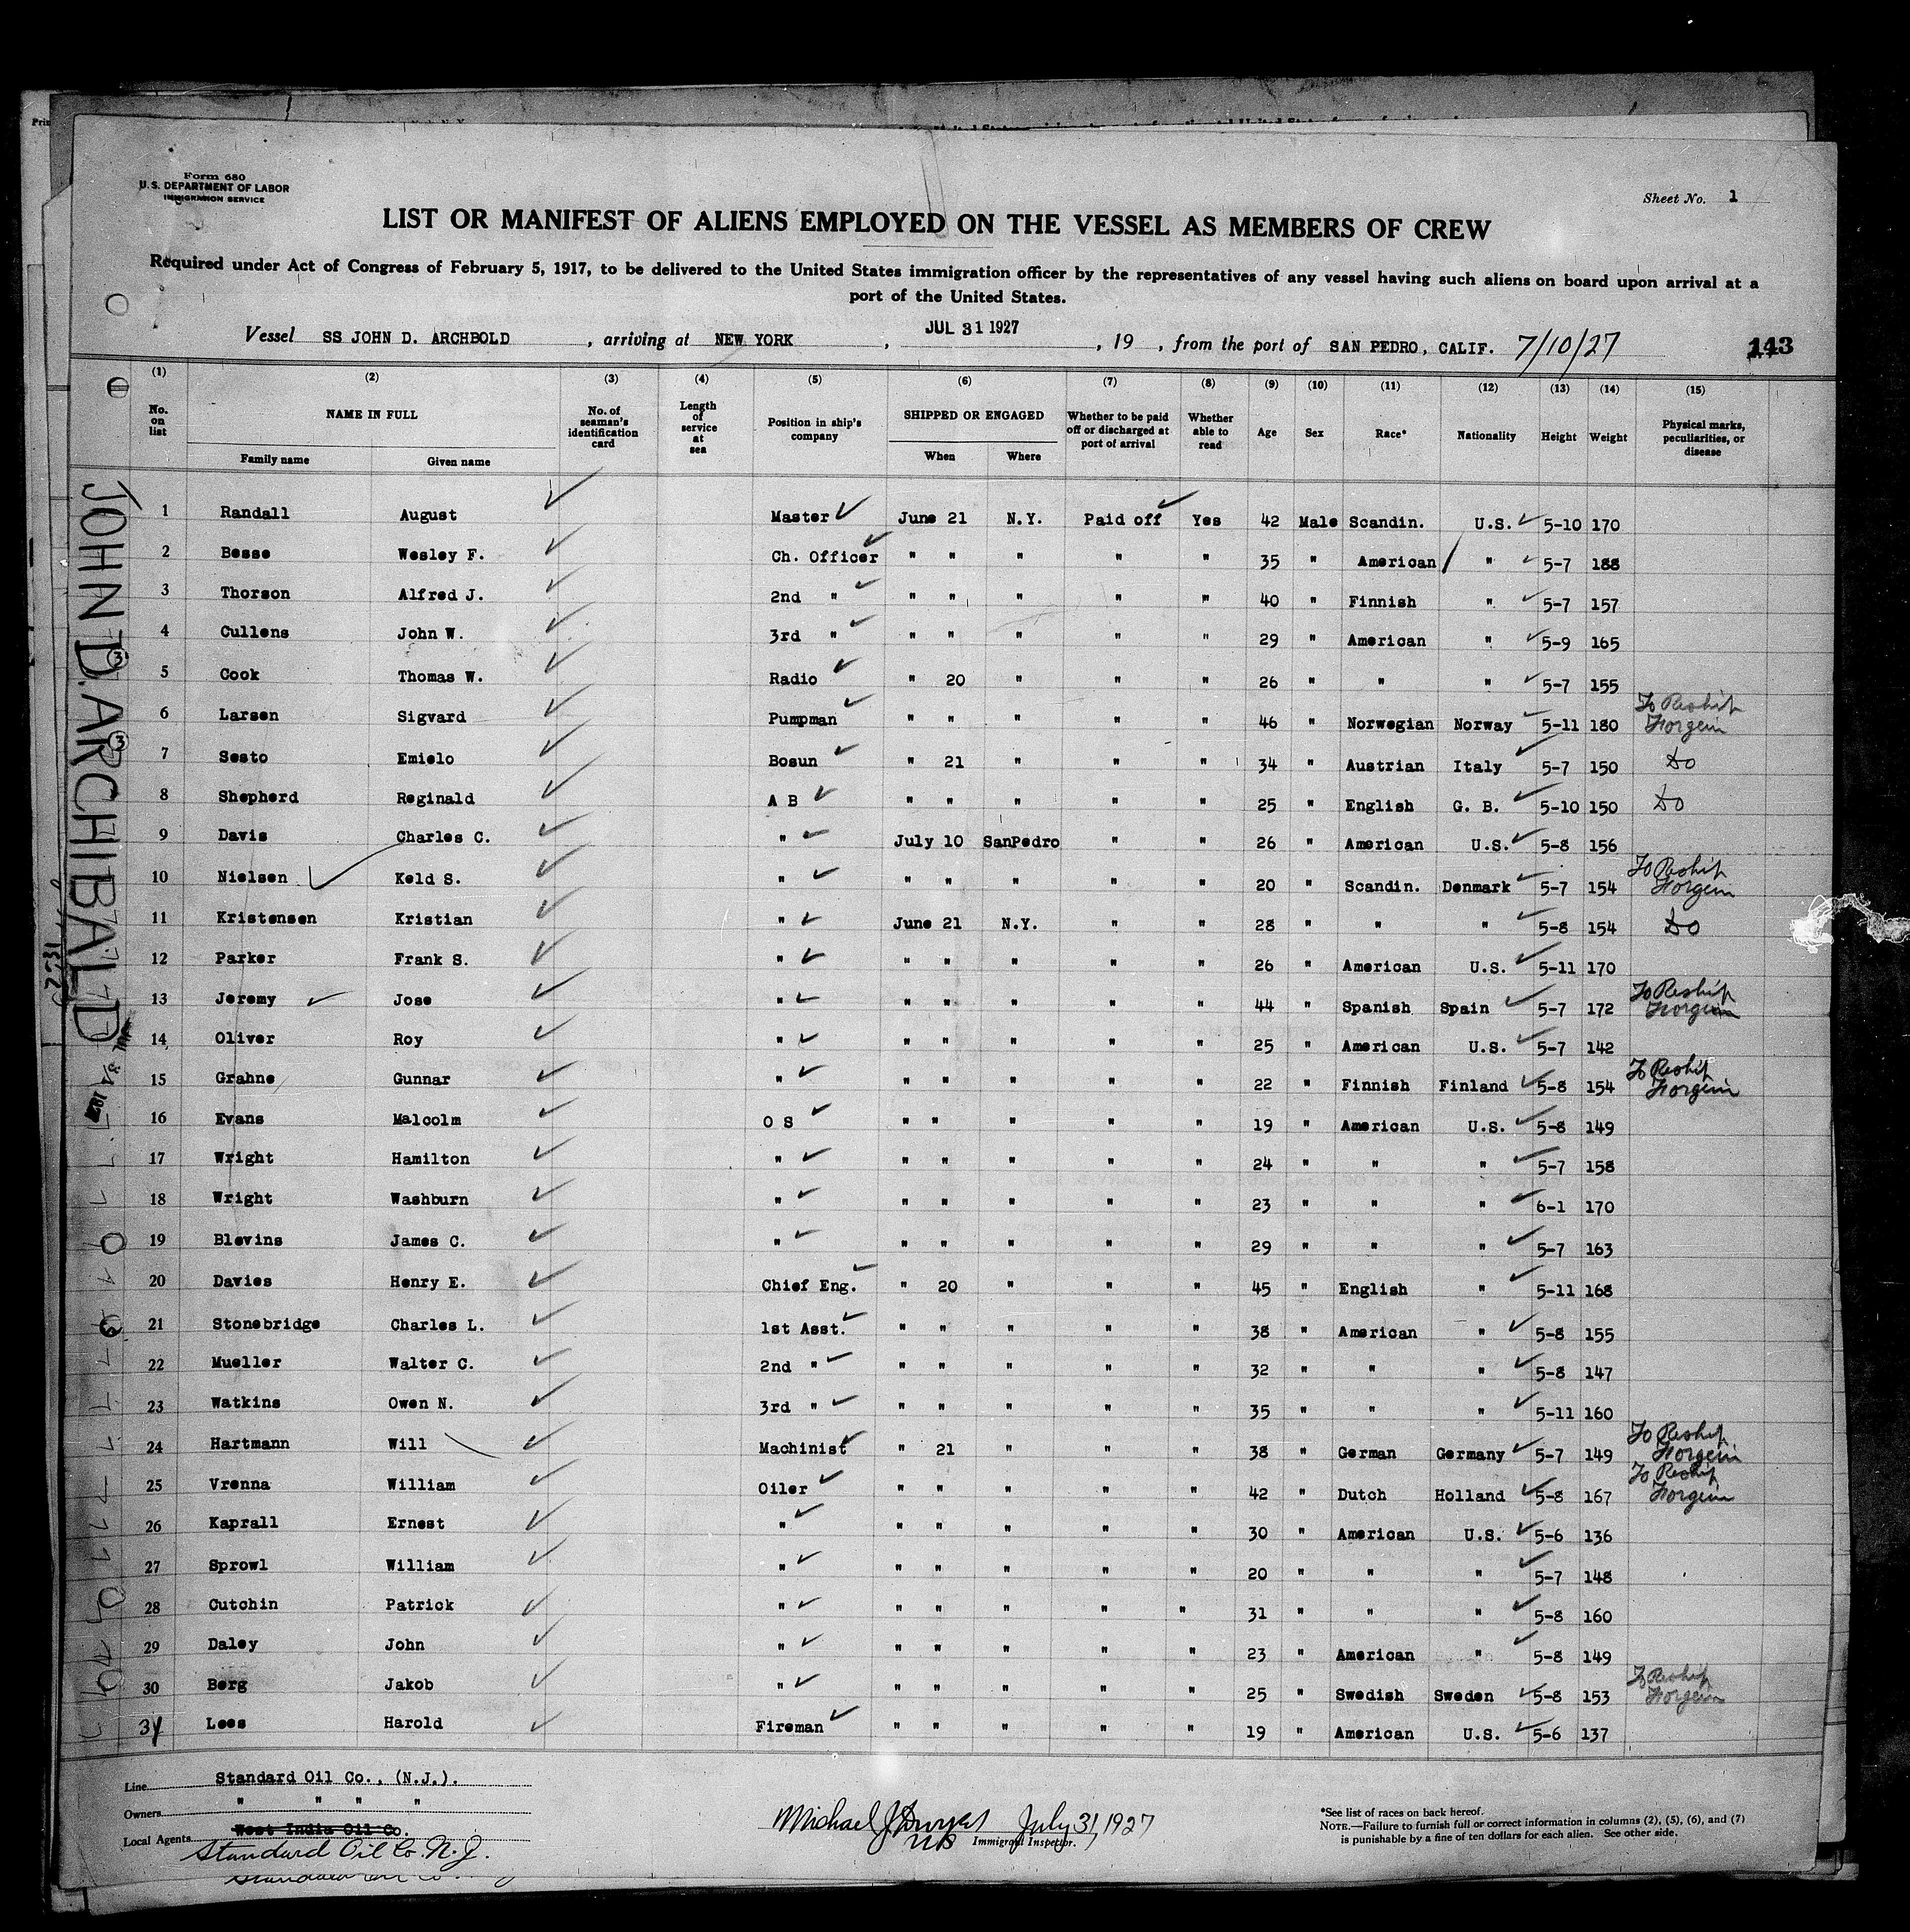 Form 680
U. S. DEPARTMENT OF LABOR
IMMIGRATION SERVICE
Sheet No. 1
LIST OR MANIFEST OF ALIENS EMPLOYED ON THE VESSEL AS MEMBERS OF CREW
Required under Act of Congress of February 5, 1917, to be delivered to the United States immigration officer by the representatives of any vessel having such aliens on board upon arrival at a
port of the United States.
Vessel SS JOHN D. ARCHBOLD , arriving at NEW YORK , JUL 31 1927 , 19 , from the port of SAN PEDRO, CALIF. 7/10/27 143
(1) (2) (3) (4) (5) (6) (7) (8) (9) (10) (11) (12) (13) (14) (15)
No. on list NAME IN FULL Family name Given name No. of seaman's identification card Length of service at sea Position in ship's company SHIPPED OR ENGAGED When Where Whether to be paid off or discharged at port of arrival Whether able to read Age Sex Race* Nationality Height Weight Physical marks, peculiarities, or disease
JOHN D. ARCHIBALD
1 Randall August Master June 21 N.Y. Paid off Yes 42 Male Scandin. U.S. 5-10 170
2 Besse Wesley F. Ch. Officer " " " " " 35 " American " 5-7 188
3 Thorson Alfred J. 2nd " " " " " " 40 " Finnish " 5-7 157
4 Cullens John W. 3rd " " " " " " 29 " American " 5-9 165
5 Cook Thomas W. Radio " 20 " " " 26 " " " 5-7 155
6 Larsen Sigvard Pumpman " " " " " 46 " Norwegian Norway 5-11 180 To Reship Forgein
7 Sesto Emielo Bosun " 21 " " " 34 " Austrian Italy 5-7 150 Do
8 Shepherd Reginald A B " " " " " 25 " English G. B. 5-10 150 Do
9 Davis Charles C. " July 10 SanPedro " " 26 " American U.S. 5-8 156
10 Nielsen Keld S. " " " " " " 20 " Scandin. Denmark 5-7 154 To Reship Forgein
11 Kristensen Kristian " June 21 N.Y. " " 28 " " " 5-8 154 Do
12 Parker Frank S. " " " " " " 26 " American U.S. 5-11 170
13 Jeremy Jose " " " " " " 44 " Spanish Spain 5-7 172 To Reship Forgein
14 Oliver Roy " " " " " " 25 " American U.S. 5-7 142
15 Grahne Gunnar " " " " " " 22 " Finnish Finland 5-8 154 To Reship Forgein
16 Evans Malcolm O S " " " " " 19 " American U.S. 5-8 149
17 Wright Hamilton " " " " " " 24 " " " 5-7 158
18 Wright Washburn " " " " " " 23 " " " 6-1 170
19 Blevins James C. " " " " " " 29 " " " 5-7 163
20 Davies Henry E. Chief Eng. " 20 " " " 45 " English " 5-11 168
21 Stonebridge Charles L. 1st Asst. " " " " " 38 " American " 5-8 155
22 Mueller Walter C. 2nd " " " " " " 32 " " " 5-8 147
23 Watkins Owen N. 3rd " " " " " " 35 " " " 5-11 160
24 Hartmann Will Machinist " 21 " " " 38 " German Germany 5-7 149 To Reship Forgein
25 Vrenna William Oiler " " " " " 42 " Dutch Holland 5-8 167 To Reship Forgein
26 Kaprall Ernest " " " " " " 30 " American U.S. 5-6 136
27 Sprowl William " " " " " " 20 " " " 5-7 148
28 Cutchin Patrick " " " " " " 31 " " " 5-8 160
29 Daley John " " " " " " 23 " American " 5-8 149
30 Berg Jakob " " " " " " 25 " Swedish Sweden 5-8 153 To Reship Forgein
31 Lees Harold Fireman " " " " " 19 " American U.S. 5-6 137
Line Standard Oil Co., (N.J.).
Owners " " " "
Local Agents West India Oil Co.
Standard Oil Co. N.J.
Michael J. July 31, 1927
Immigrant Inspector.
*See list of races on back hereof.
NOTE.—Failure to furnish full or correct information in columns (2), (5), (6), and (7)
is punishable by a fine of ten dollars for each alien. See other side.